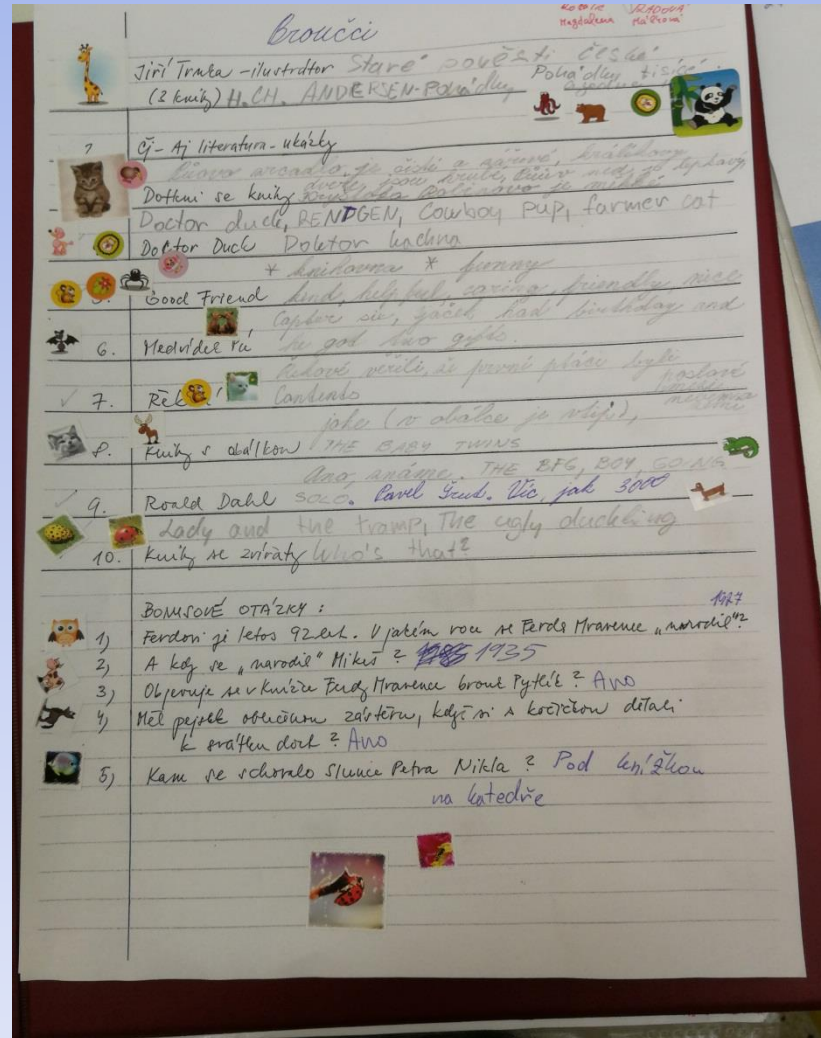 Broučci
Magdalena
Jiří Trnka - ilustrátor Staré pověsti české
(3 knihy) H.CH. ANDERSEN-Pohádky Pohádky tisíce
Čj - Aj literatura - ukázky
Dotkni se knihy
Doctor duck, RENDGEN, Cowboy pup, farmer cat
Doctor Duck Doktor kachna
* knihovna * funny
Good Friend kind, helpful, caring, friendly, nice
had birthday and
6. Medvídek Pú he got two gifts.
Řekové věřili, že první ptáci byli
7.
joke (v obálce je vtip),
8. Knihy s obálkou THE BABY TWINS
Ano, známe. THE BFG, BOY, GOING
9. Roald Dahl SOLO. Pavel Šrut. Víc, jak 3000
Lady and the tramp, The ugly duckling
10. Knihy se zvířaty Who's that?
BONUSOVÉ OTÁZKY:
1927
1) Ferdovi je letos 92 let. V jakém roce se Ferda Mravenec „narodil"?
2) A kdy se „narodil" Mikeš? 1935
3) Objevuje se v knížce Ferdy Mravence brouk Pytlík? Ano
4) Měl pejsek oblečenou zástěru, když si s kočičkou dělali
k svátku dort? Ano
5) Kam se schovalo Slunce Petra Nikla? Pod knížkou
na katedře